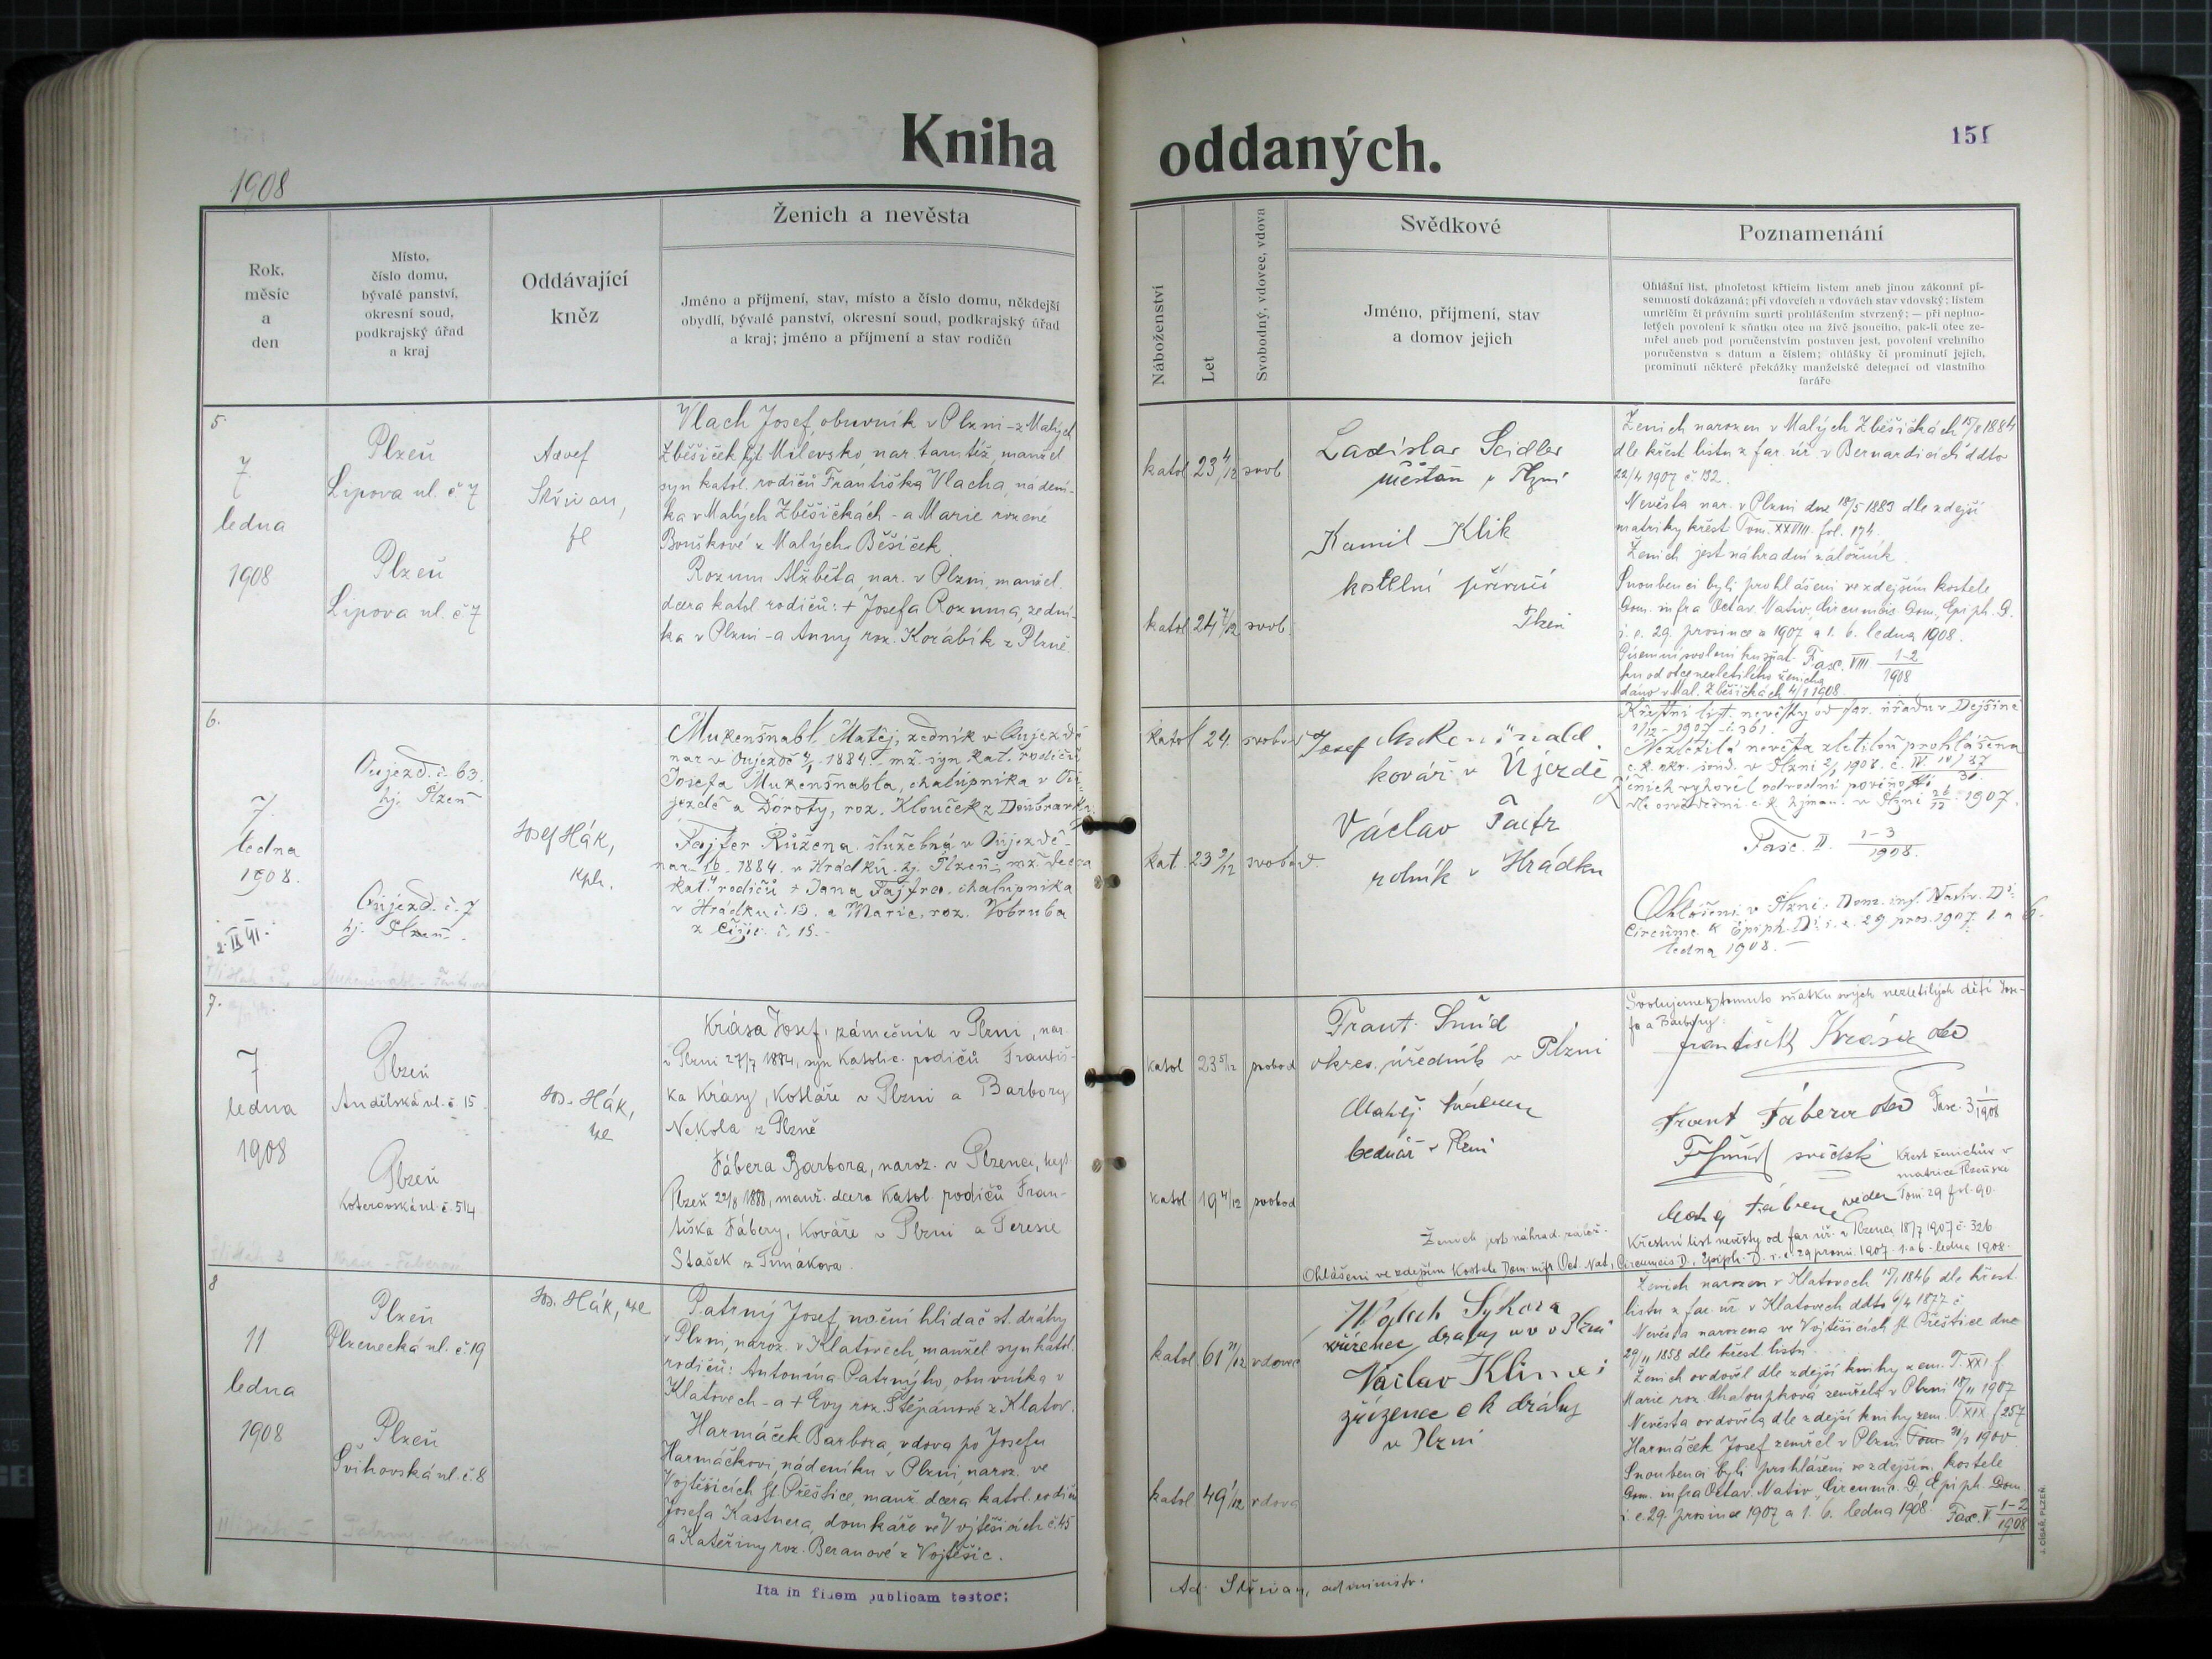 Kniha oddaných.
151
1908
Rok,
měsíc
a
den
Místo,
číslo domu,
bývalé panství,
okresní soud,
podkrajský úřad
a kraj
Oddávající
kněz
Ženich a nevěsta
Jméno a příjmení, stav, místo a číslo domu, někdejší
obydlí, bývalé panství, okresní soud, podkrajský úřad
a kraj; jméno a příjmení a stav rodičů
Náboženství
Let
Svobodný, vdovec, vdova
Svědkové
Jméno, příjmení, stav
a domov jejich
Poznamenání
Ohlášní list, plnoletost křticím listem aneb jinou zákonní pí-
semností dokázaná; při vdovcích a vdovách stav vdovský; listem
umrlčím či právním smrti prohlášením stvrzený; — při neplno-
letých povolení k sňatku otce na živě jsoucího, pak-li otec ze-
mřel aneb pod poručenstvím postaven jest, povolení vrchního
poručenstva s datum a číslem; ohlášky či prominutí jejich,
prominutí některé překážky manželské delegací od vlastního
faráře
5
7
ledna
1908
Plzeň
Lipova ul. č 7
Plzeň
Lipova ul. č 7
Skřivan,
Vlach Josef, obuvník v Plzni - z Malých
Zběšiček hjt Milevsko, nar. tamtéž, manžel
syn katol. rodičů Františka Vlacha, nádení-
ka v Malých Zběšičkách - a Marie rozené
Bouškové z Malých Běšiček.
Rozum Alžběta, nar. v Plzni, manžel.
dcera katol rodičů: + Josefa Rozuma, zední-
ka v Plzni - a Anny roz. Korábík z Plzně.
katol 23 4/12 svob
katol 24 7/12 svob.
Ladislav Seidler
měšťan v Plzni
Kamil Klik
kostelní
Plzeň
Ženich narozen v Malých Zběšičkách 15/8 1884
dle křest listu z far. úř. v Bernardicích ddto
22/4 1907 č. 132.
Nevěsta nar. v Plzni dne 18/5 1883 dle zdejší
matriky křest Tom. XXVIII. fol. 174.
Ženich jest náhradní záložník.
Snoubenci byli prohlášeni ve zdejším kostele
Dom. infra Octav. Nativ., Circumcis Dom., Epiph. D.
i. e. 29. prosince a 1907 a 1. 6. ledna 1908.
Písemní svolení ku sňat- Fasc. VIII 1-2/1908
ku od otce nezletilého ženicha
dáno v Mal. Zběšičkách 4/1 1908
6.
7.
ledna
1908.
2. IX 41.
Oujezd. č. 63.
hj. Plzeň
Oujezd. č. 7
hj. Plzeň.
Josef Hák,
kpl.
Mukenšnabl, Matěj, zedník v Oujezdě
nar v Oujezdě 1884. mž. syn kat. rodičů
Josefa Mukenšnabla, chalupníka v Ou-
jezdě a Doroty, roz. Klouček z Doubravky.
Fajfer Růžena služebná v Oujezdě -
nar. 1884. v Hrádku. hj. Plzeň; mž. dcera
kat. rodičů + Jana Fajfra. chalupníka
v Hrádku č. 13. a Marie, roz. Vobruba
z Čižic. č. 15. -
katol 24. svobod
kat. 23 svobod
Josef
kovář v Újezdě
Václav
rolník v Hrádku
Křestní list. nevěsty od far. úřadu v Dejšině
1907 - č. 361.
Nezletilá nevěsta zletilou prohlášena
c. k. okr. soud. v Plzni 2/1 1908. č. IV.
Ženich vyhověl odvodní povinosti
dle osvědčení c. k. hjman. v Plzni 1907.
Fasc. II. 1-3/1908.
Ohlášeni v Plzni: Dom. inf. Nativ. D:
Circumc. & Epiph. D: i. e. 29 pros. 1907. 1. a 6.
ledna 1908. -
7.
7
ledna
1908
Plzeň
Andělská ul. č 15.
Plzeň
Koterovská ul. č. 514
Jos. Hák,
Krása Josef, zámečník v Plzni, nar.
v Plzni 27/7 1884, syn katolic. rodičů Františ-
ka Krásy, kotláře v Plzni a Barbory
Nekola z Plzně
Fábera Barbora, naroz. v Plzenci, hejt
Plzeň 22/8 1888, manž. dcera katol. rodičů Fran-
tiška Fábery, kováře v Plzni a Teresie
Stašek z Timákova.
katol 23 5/12 svobod
katol. 19 4/12 svobod
Frant. Šmíd
okres. úředník v Plzni
Matěj
bednář v Plzni
Ženich jest náhrad. zálož.
Svolujeme k tomuto sňatku svých nezletilých dětí Jose-
fa a Barbory:
František Krása otec
Frant Fábera otec Fasc. 3 1908
FŠmíd svědek
Křest ženichův v
matrice Plzeňské
Tom. 29 fol. 90.
Matěj Fábera svědek
Křestní list nevěsty od far. úř. v Plzenci 18/7 1907 č. 326
Ohlášeni ve zdejším kostele Dom. infr Oct. Nat., Circumcis D., Epiph. D. i. e. 29 prosin. 1907. 1. a 6. ledna 1908.
8
11
ledna
1908
Plzeň
Plzenecká ul. č 19
Plzeň
Švihovská ul. č. 8
Jos. Hák,
Patrný Josef, noční hlídač st. dráhy
v Plzni, naroz. v Klatovech, manžel syn katol.
rodičů: Antonína Patrného, obuvníka v
Klatovech - a + Evy roz. Štěpánové z Klatov.
Harmáček Barbora, vdova po Josefu
Harmáčkovi, nádeníku v Plzni, naroz. ve
Vojtěšicích hjt. Přeštice, manž. dcera katol. rodičů
Josefa Kastnera, domkáře ve Vojtěšicích č. 45
a Kateřiny roz. Beranové z Vojtěšic.
katol 61 11/12 vdovec
katol 49 1/12 vdova
Vojtěch Sýkora
zřízenec dráhy v Plzni
Václav
zřízenec c k dráhy
v Plzni
Ženich narozen v Klatovech 15/1 1846 dle křest.
listu z far. úř v Klatovech ddto 6/4 1877 č.
Nevěsta narozena ve Vojtěšicích hjt. Přeštice dne
29/11 1858 dle křest listu
Ženich ovdověl dle zdejší knihy zem. T. XXI f.
Marie roz. Chaloupková zemřela v Plzni 18/11 1907
Nevěsta ovdověla dle zdejší knihy zem. T. XIX. f 257
Harmáček Josef zemřel v Plzni 1900.
Snoubenci byli prohlášeni ve zdejším kostele
Dom. infra Octav. Nativ., Circumc. D, Epiph. Dom.
i. e. 29. prosince 1907 a 1. 6. ledna 1908. Fasc. V. 1-2/1908
Ita in fidem publicam testor:
Ad. Skřivan, administr.
J. CÍSAŘ, PLZEŇ.